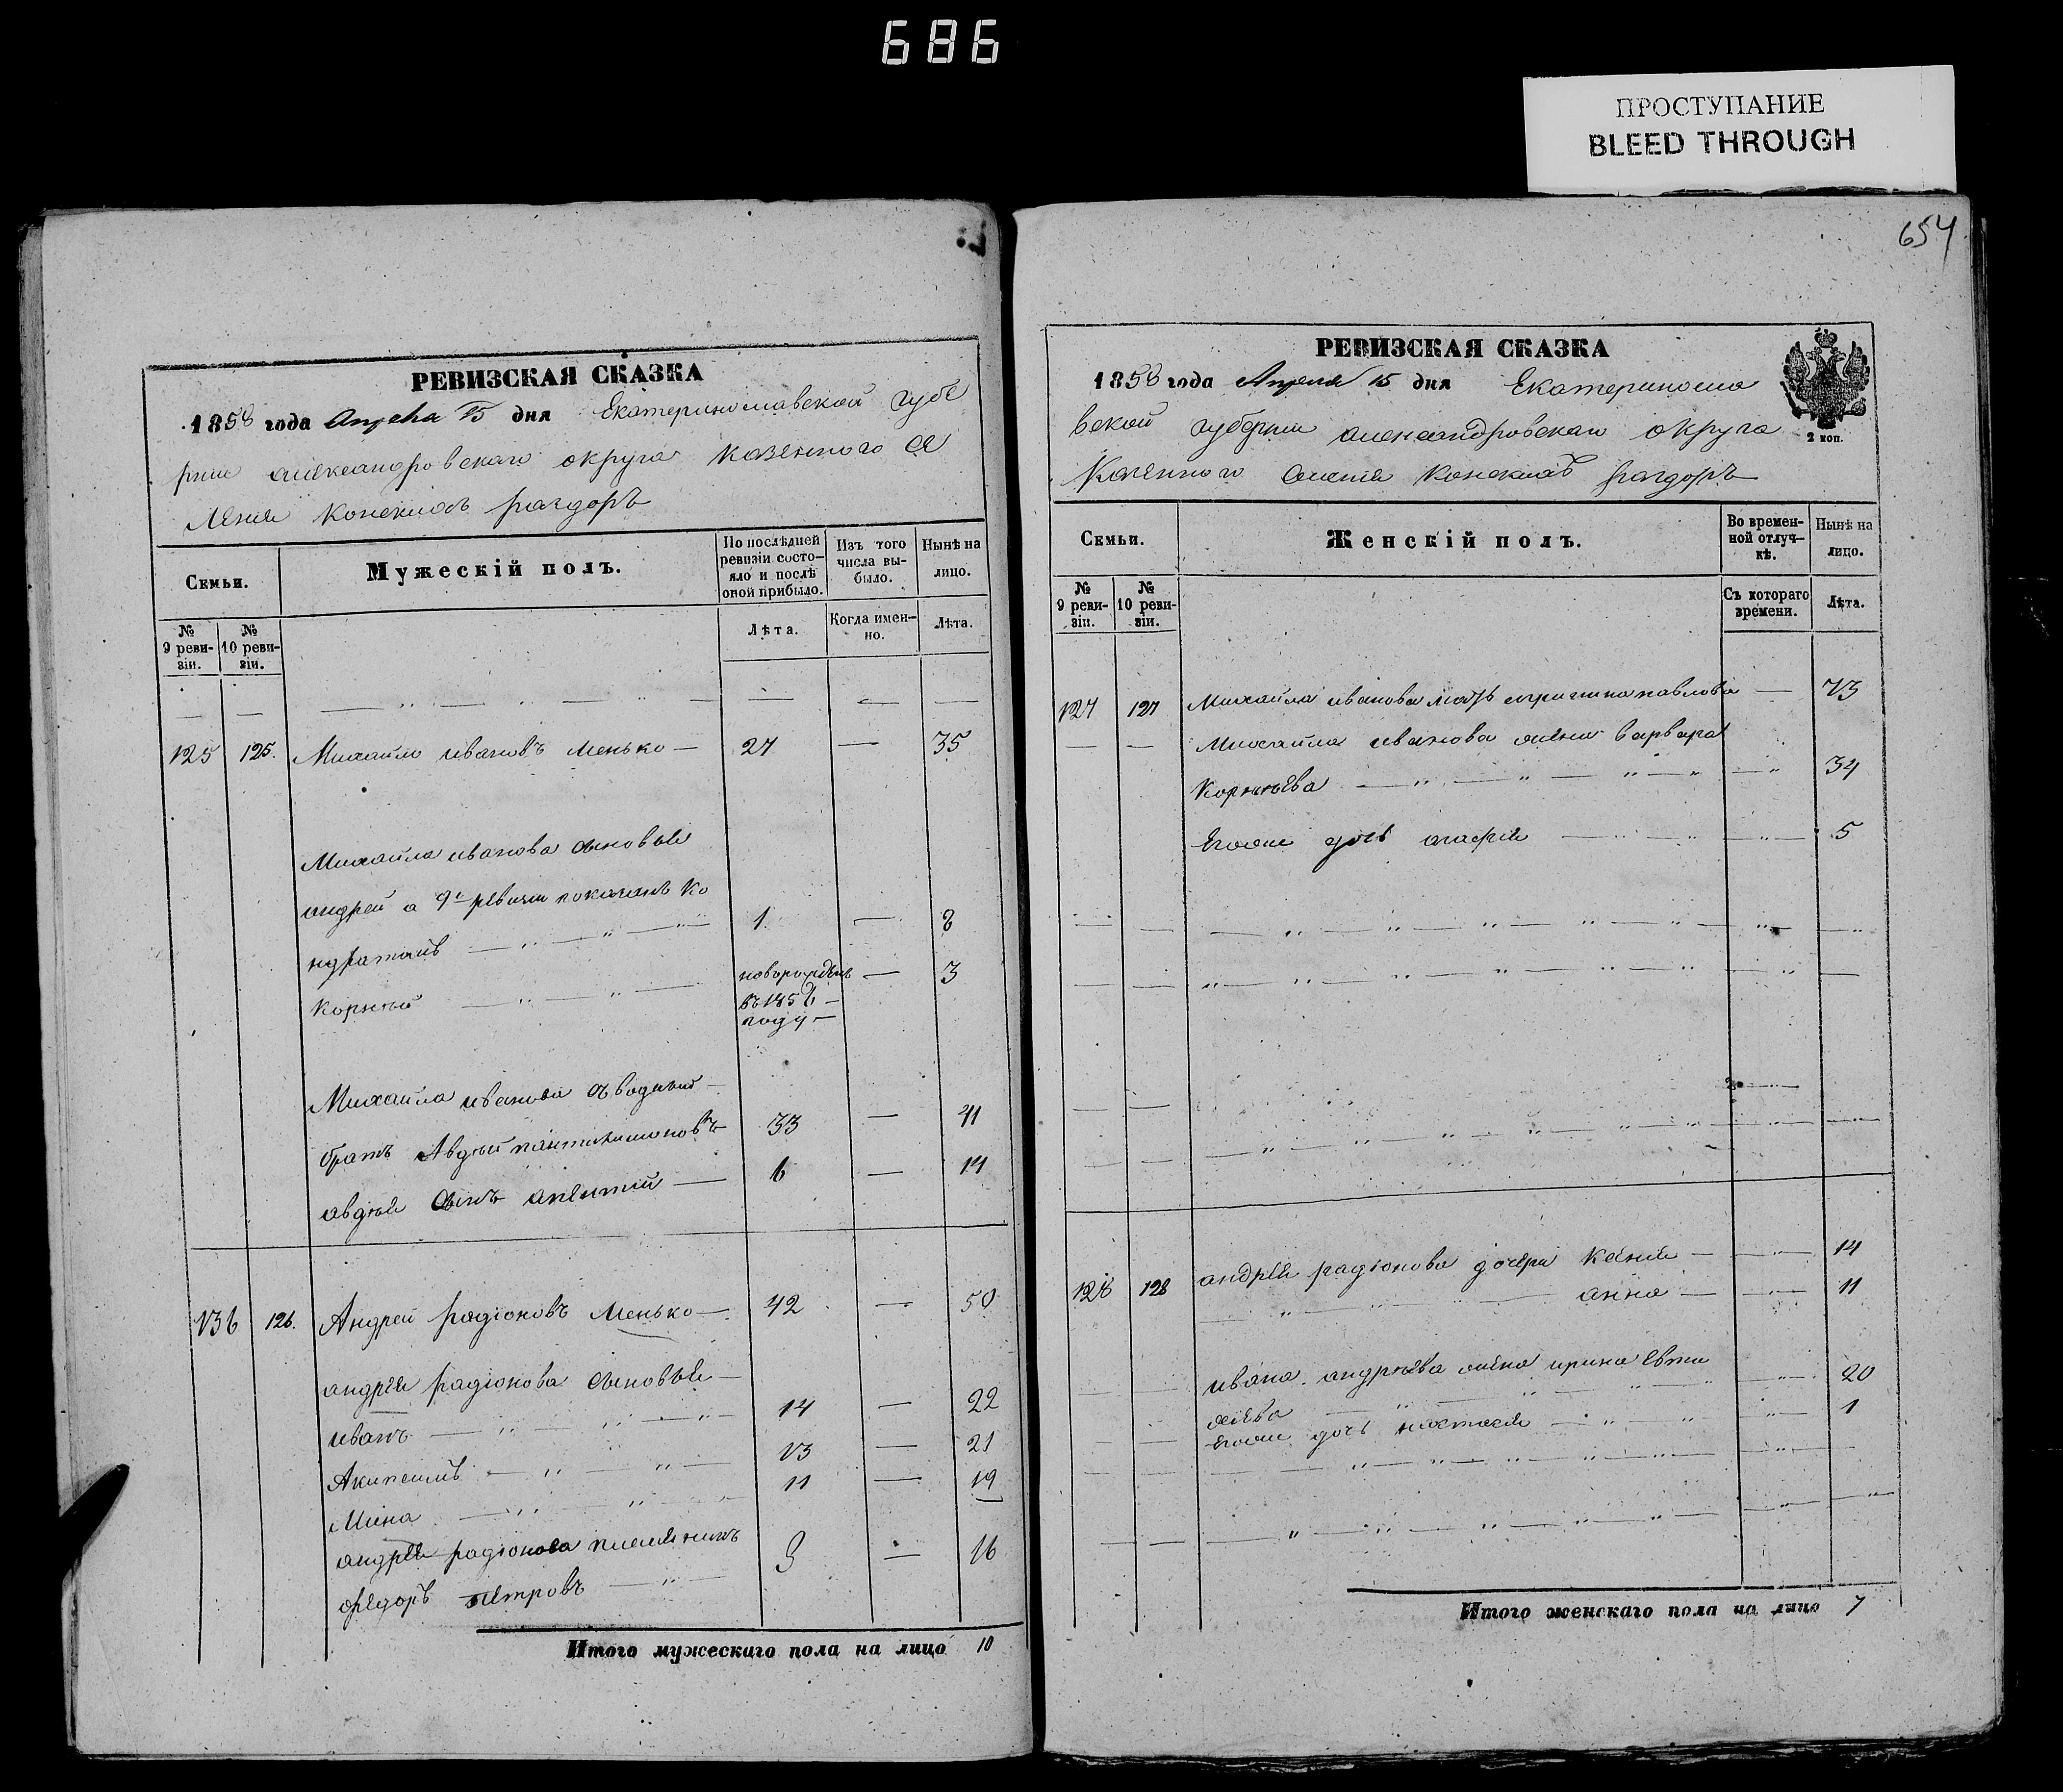 686
ПРОСТУПАНИЕ
BLEED THROUGH
654
РЕВИЗСКАЯ СКАЗКА
1858 года Апреля 15 дня Екатеринославской губе
рнии александровскаго округа казенного се
ления конскихъ раздоръ
Семьи.
Мужескій полъ.
По послѣдней ревизіи состо-яло и послѣ оной прибыло.
Изъ того числа вы-было.
Нынѣ на лицо.
№ 9 реви-зіи.
№ 10 реви-зіи.
Лѣта.
Когда имен-но.
Лѣта.
125 125. Михайло ивановъ менько — 27 — 35
Михайла иванова сыновья
андрей а 9й ревизіи показанъ ко
ндратомъ 1. — 8
корнѣй новорожденъ — 3
въ 1856
году
Михайла иванова
братъ Авдѣй 33 — 41
авдѣя сынъ 6 — 14
136 126. Андрей радіоновъ менько — 42 — 50
андрея радіонова сыновья —
иванъ 14 — 22
Акипсимъ 13 — 21
Мина 11 — 19
андрея радіонова племянникъ
федоръ петровъ 9 — 16
Итого мужескаго пола на лицо 10
РЕВИЗСКАЯ СКАЗКА
1858 года Апреля 15 дня Екатериносла
вской губернии александровскаго округа
2 коп.
Казенного селения конскихъ раздоръ
Семьи.
Женскій полъ.
Во времен-ной отлуч-кѣ.
Нынѣ на лицо.
№ 9 реви-зіи.
№ 10 реви-зіи.
Съ котораго времени.
Лѣта.
127 127 Михайла иванова мать павлова — 73
Михайла иванова жена варвара
Корнѣева 34
Егоже дочь агафия 5
128 128 андрея радіонова дочери Ксения — 14
анна — 11
ивана андрѣева жена ирина евти
хіева 20
Егоже дочь настасия 1
Итого женскаго пола на лицо 7